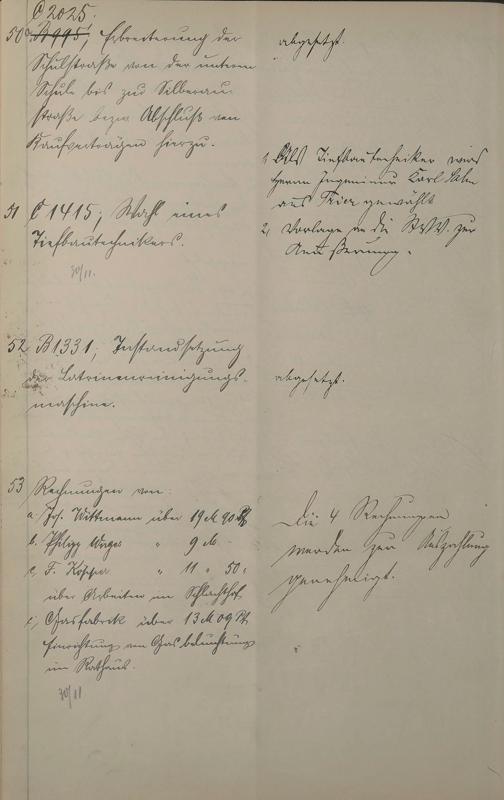 C 2025.
50 B 995, Erbreiterung der
Schulstraße von der unteren
Schule bis zur Silberau-
straße bezw. Abschluß von
Kaufverträgen hierzu.
abgesetzt.
51 C 1415, Wahl eines
Tiefbautechnikers.
30/11.
1, Als Tiefbautechniker wird
Herrn Ingenieur Karl
aus Trier gewählt
2, Vorlage an die St.V.V. zur
Äußerung.
52 B 1331, Instandsetzung
der Latrinenreinigungs-
maschine.
abgesetzt.
53 Rechnungen von:
a. Joh. Wittmann über 19 M 90 Pf
b. Philipp " 9 M. -
c, F. " 11 " 50 "
über Arbeiten im Schlachthof
c, Gasfabrik über 13 M 09 Pf
Einrichtung von Gasbeleuchtung
im Rathaus.
30/11
Die 4 Rechnungen
werden zur Auszahlung
genehmigt.